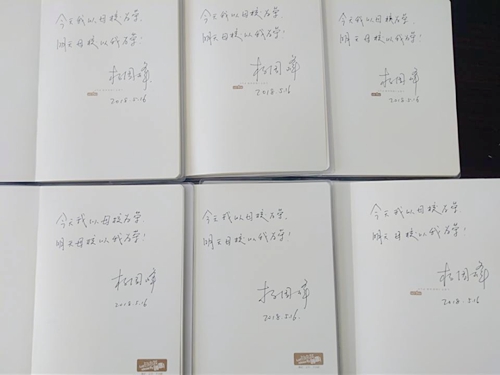 今天我以母校为荣,
明天母校以我为荣!
2018.5.16
今天我以母校为荣,
明天母校以我为荣!
2018.5.16
今天我以母校为荣,
明天母校以我为荣!
2018.5.16
今天我以母校为荣,
明天母校以我为荣!
2018.5.16
今天我以母校为荣,
明天母校以我为荣!
2018.5.16.
今天我以母校为荣,
明天母校以我为荣!
2018.5.16